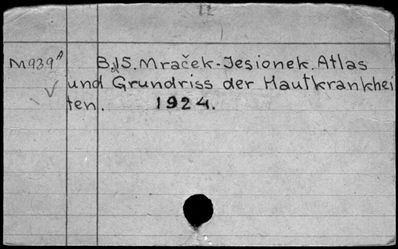 12
M939A B5. Mraček-Jesionek. Atlas
und Grundriss der Hautkrankhei
ten. 1924.